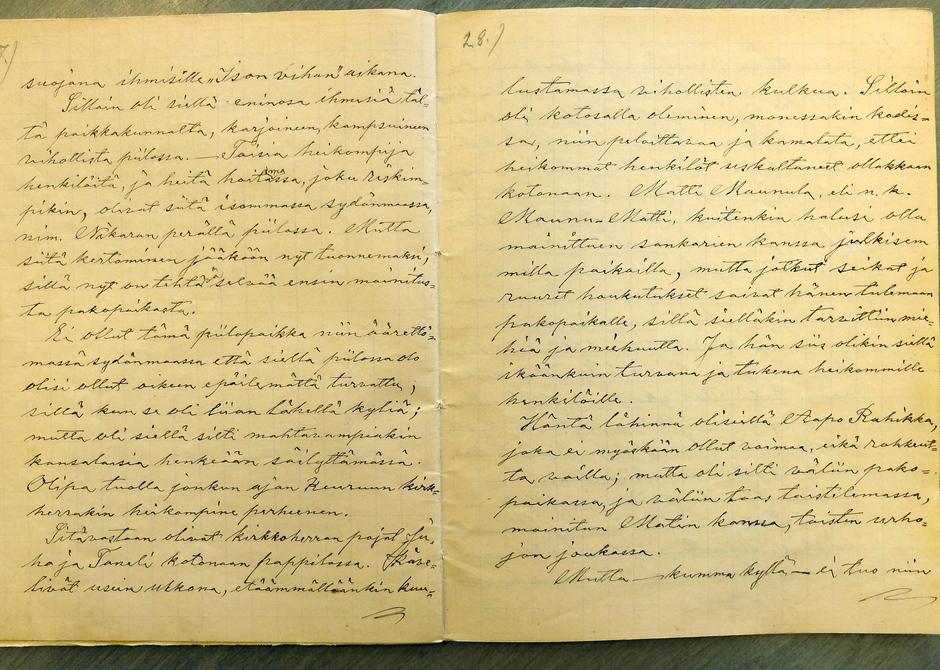 7.)
suojana ihmisille "Ison vihan" aikana.
Silloin oli siellä eninosa ihmisiä täl-
tä paikkakunnalta, karjoineen, kampsuineen
vihollista piilossa. — Toisia heikompija
henkilöitä, ja heitä hoitamassa, joku reskin-
pikin, olivat siitä isommassa sydänmaassa,
nim. Nikaran perällä piilossa. Mutta
siitä kertominen jääköön nyt tuonnemaksi,
sillä nyt on tehtävä selvää ensin mainitus-
ta pakopaikasta.
Ei ollut tämä piilopaikka niin äärettö-
mässä sydänmaassa että siellä piilossa olo
olisi ollut oikeen epäilemättä turvattu,
sillä kun se oli liian lähellä kyliä;
mutta oli siellä silti mahtavampiakin
kansalaisia henkeään säilyttämässä.
Olipa tuolla jonkun ajan Keuruun kirk-
herrakin heikompine perheenen.
Sitävastoin olivat kirkkoherran pojat Ju-
ho ja Taneli kotonaan pappilassa. Käve-
livät usein ulkona, etäämmältäänkin kuu-
28.)
lustamassa vihollisten kulkua. Silloin
oli kotosalla oleminen, monessakin kodis-
sa, niin peloittavaa ja kamalata, ettei
heikommat henkilöt uskaltaneet ollakkaan
kotonaan. Matti Maunula, eli n.k.
Maunu-Matti, kuitenkin halusi olla
mainittuen sankarien kanssa julkisem
milla paikoilla, mutta jotkut seikat ja
suuret houkutukset saivat hänen tulemaan
pakopaikalle, sillä sielläkin tarvittiin mie-
hiä ja miehuutta. Ja hän siis olikin siellä
ikäänkuin turvana ja tukena heikommille
henkilöille.
Häntä lähinnä oli siellä Aapo Rahikka,
joka ei myöskään ollut voimaa, eikä rohkeut-
ta vailla; mutta oli silti väliin pako-
paikassa, ja väliin taas taistelemassa,
mainitun Matin kanssa, toisten urho-
jen joukassa.
Mutta — kumma kyllä — ei tuo niin